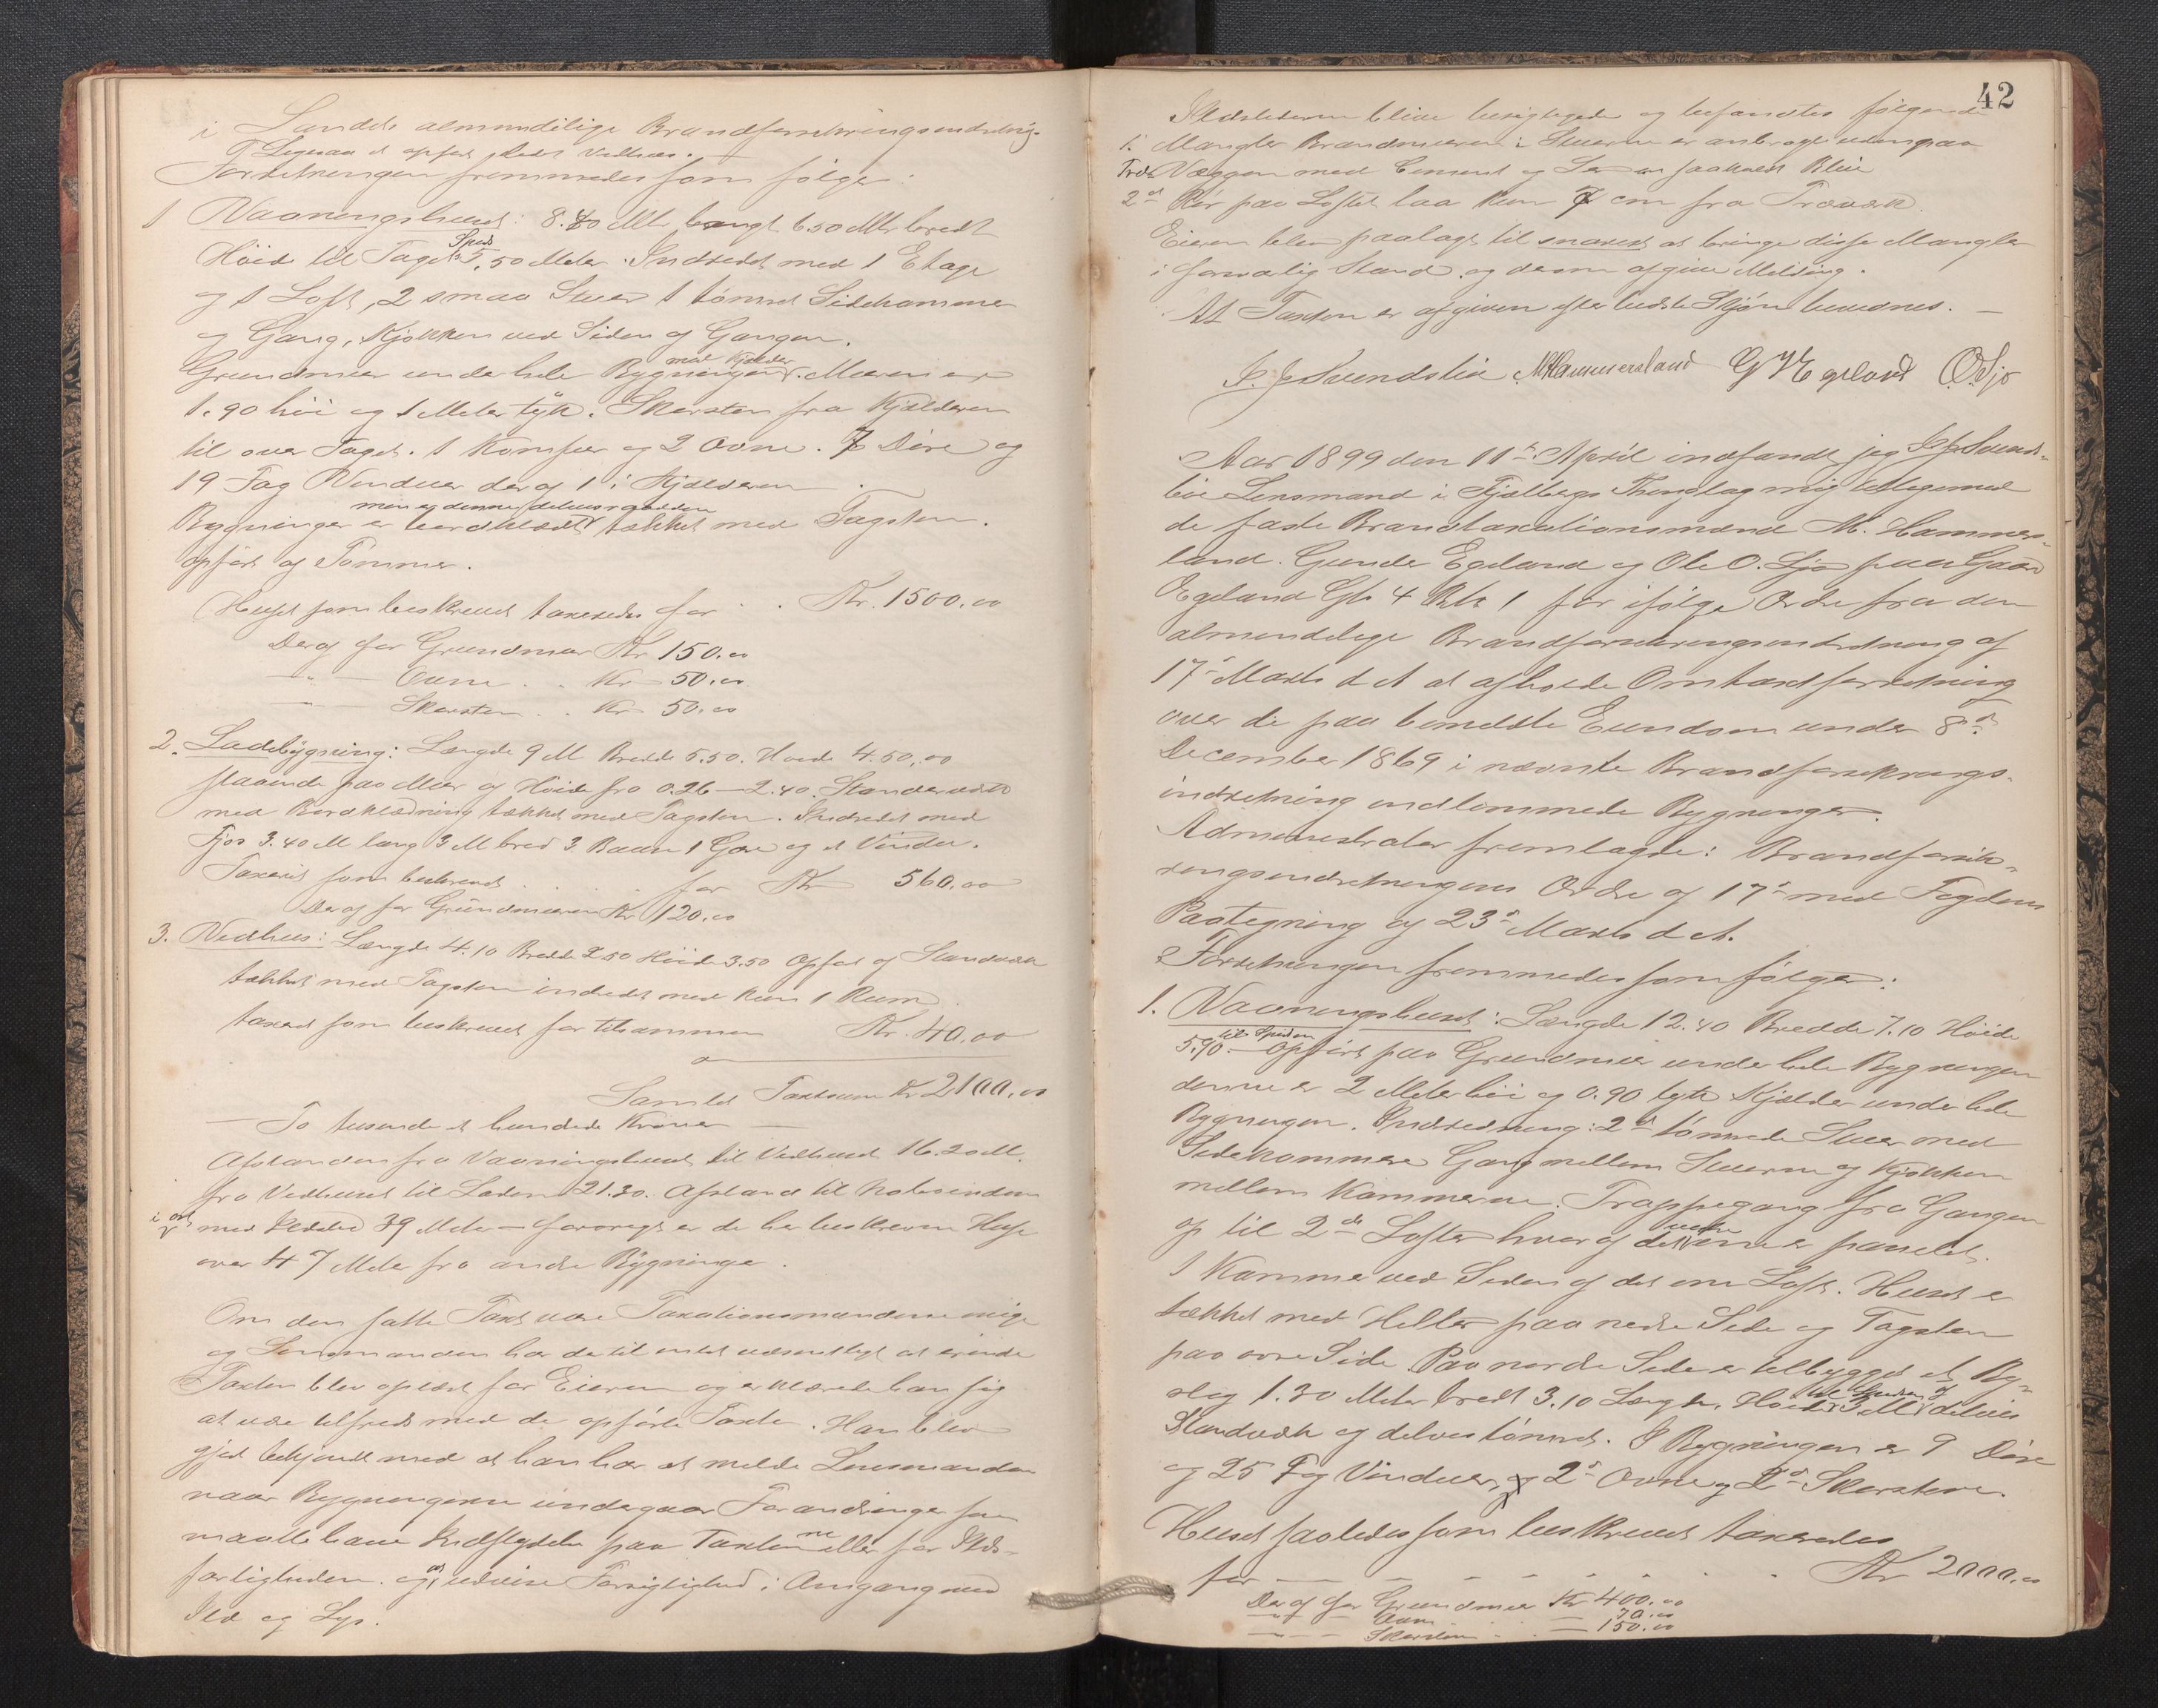 i Landets almindelige Brandforsikringsindretning.
Ligesaa et opført lidet Vedhus.
Forretningen fremmedes som følger:
1 Vaaningshuset: 8.80 Mtr langt 6.50 Mtr bredt
Høide til Tagets Spids .50 Meter. Indredet med 1 Etage
og 1 Loft, 2 smaa Stuer 1 tømret Sidekammer
og Gang, Kjøkken ved Siden af Gangen.
Grundmur under hele Bygningen med Kjelder. Muren er
1.90 høi og 1 Meter tyk. Skorsten fra Kjælderen
til over Taget. 1 Komfur og 2 Ovne. 7 Døre og
19 Fag Vinduer deraf 1 i Kjælderen.
Bygningen er bordklædt men er denne delvis raadden tækket med Tagsten.
opført af Tømmer.
Huset som beskrevet taxeredes for . . Kr. 1500.00
Deraf for Grundmur Kr 150.00
—"— Ovne . . Kr 50.00
—"— Skorsten . . Kr 50.00
2. Ladebygning: Længde 9 M Bredde 5.50. Høide 4.50,00
staaende paa Mur af Høide fra 0.26 — 2.40. Standerværk
med Bordklædning tækket med Tagsten. Indredet med
Fjøs 3.40 M lang 3 M bred 3 Baase 1 Gare og et Vindue.
Taxeret som beskrevet . . . . for Kr 560.00
Deraf for Grundmuren Kr 120.00
3. Vedhus: Længde 4.10 Bredde 2.50 Høide 3.50 Opført af Standværk
tækket med Tagsten indredt med kun 1 Rum.
taxeret som beskrevet for tilsammen Kr. 40.00
Samlet Taxtsum Kr 2100.00
— To tusende et hundrede Kroner —
Afstanden fra Vaaningshuset til Vedhuset 16.20 M.
fra Vedhuset til Laden 21.30. Afstand til Naboeiendom
med Ildsted 39 Meter — forøvrigt er de her beskrevne Huse
over 47 Meter fra andre Bygninger.
Om den satte Taxt vare Taxationsmændene enige
og Lensmanden har dertil intet væsentligt at erindre
Taxten blev oplæst for Eieren og erklærede han sig
at være tilfreds med de opførte Taxter. Han blev
gjort bekjendt med at han har at melde Lensmanden
naar Bygningerne undergaar Forandringer som
maatte have Indflydelse paa Taxterne eller for Ild-
farligheden. og at udvise Forsigtighed i Omgang med
Ild og Lys.
42
Ildstederne bleve besigtigede og befandtes følgende
1. Mangler Brandmuren i Stuerne er anbragt udenpaa
Træ Væggen med Cement og saakaldt Bliu
2det Rør paa Loftet laa kun 7 cm fra Træværk.
Eieren blev paalagt til snarest at bringe disse Mangler
i forsvarlig Stand og derom afgive Melding.
At Taxten er afgiven efter bedste Skjøn bevidnes. —
J. J. Svendsbøe M Hammersland G H Egeland O. Sjo
Aar 1899 den 11te April indfandt jeg J J Svends-
bøe Lensmand i Fjælbergs Thinglag mig tilligemed
de faste Brandtaxationsmænd M. Hammers-
land. Gunder Egeland og Ole O. Sjo paa Gaard
Egeland Gb 4 Bb 1 for ifølge Ordre fra den
almindelige Brandforsikringsindretning af
17de Marts d A at afholde Omtaxtforretning
over de paa bemeldte Eiendom under 8de
December 1869 i nævnte Brandforsikrings-
indretning indlemmede Bygninger.
Administrator fremlagde: Brandforsik-
ringsindretningens Ordre af 17de med Fogdens
Paategning af 23de Marts d A.
Forretningen fremmedes som følger:
1. Vaaningshuset: Længde 12.40 Bredde 7.10 Høide
5.90 til Spidsen — opført paa Grundmur under hele Bygningen
denne er 2 Meter høi og 0.90 tyk Kjælder under hele
Bygningen. Indredning: 2de tømrede Stuer med
Sidekammere Gang mellem Stuerne og Kjøkken
mellem Kammerne. Trappegang fra Gangen
op til 2de Lofter hvoraf det ene er panelet.
1 Kammer ved Siden af det ene Loft. Huset er
tækket med Heller paa nedre Side og Tagsten
paa øvre Side Paa nordre Side er tilbygget et By-
slag 1.30 Meter bredt 3.10 Længde. Høide til Spidsen 3 M af delvis
Standværk og delvis tømret. I Bygningen er 9 Døre
og 25 Fag Vinduer, 2de Ovne og 2de Skorstene.
Huset saaledes som beskrevet taxeredes
for — — — — — — — . . Kr 2000.00
Deraf for Grundmur Kr 400.00
—"— Ovne — 70.00
—"— Skorsten — 150.00